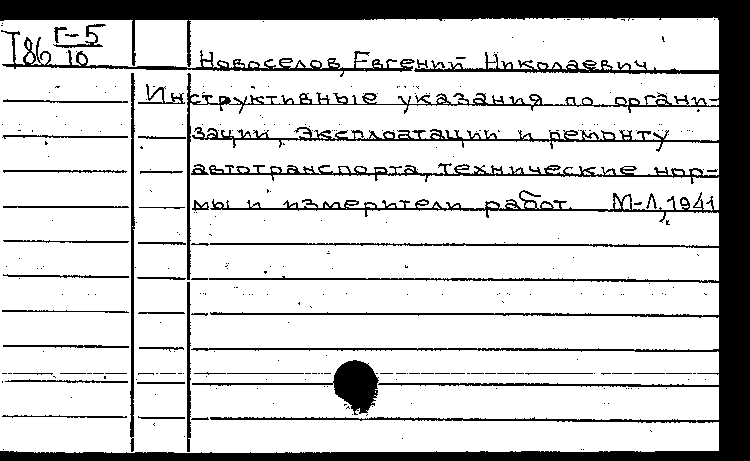 Т86 Г-5
10
Новоселов, Евгений Николаевич.
Инструктивные указания по органи-
зации, эксплоатации и ремонту
автотранспорта, технические нор-
мы и измерители работ. М-Л, 1941